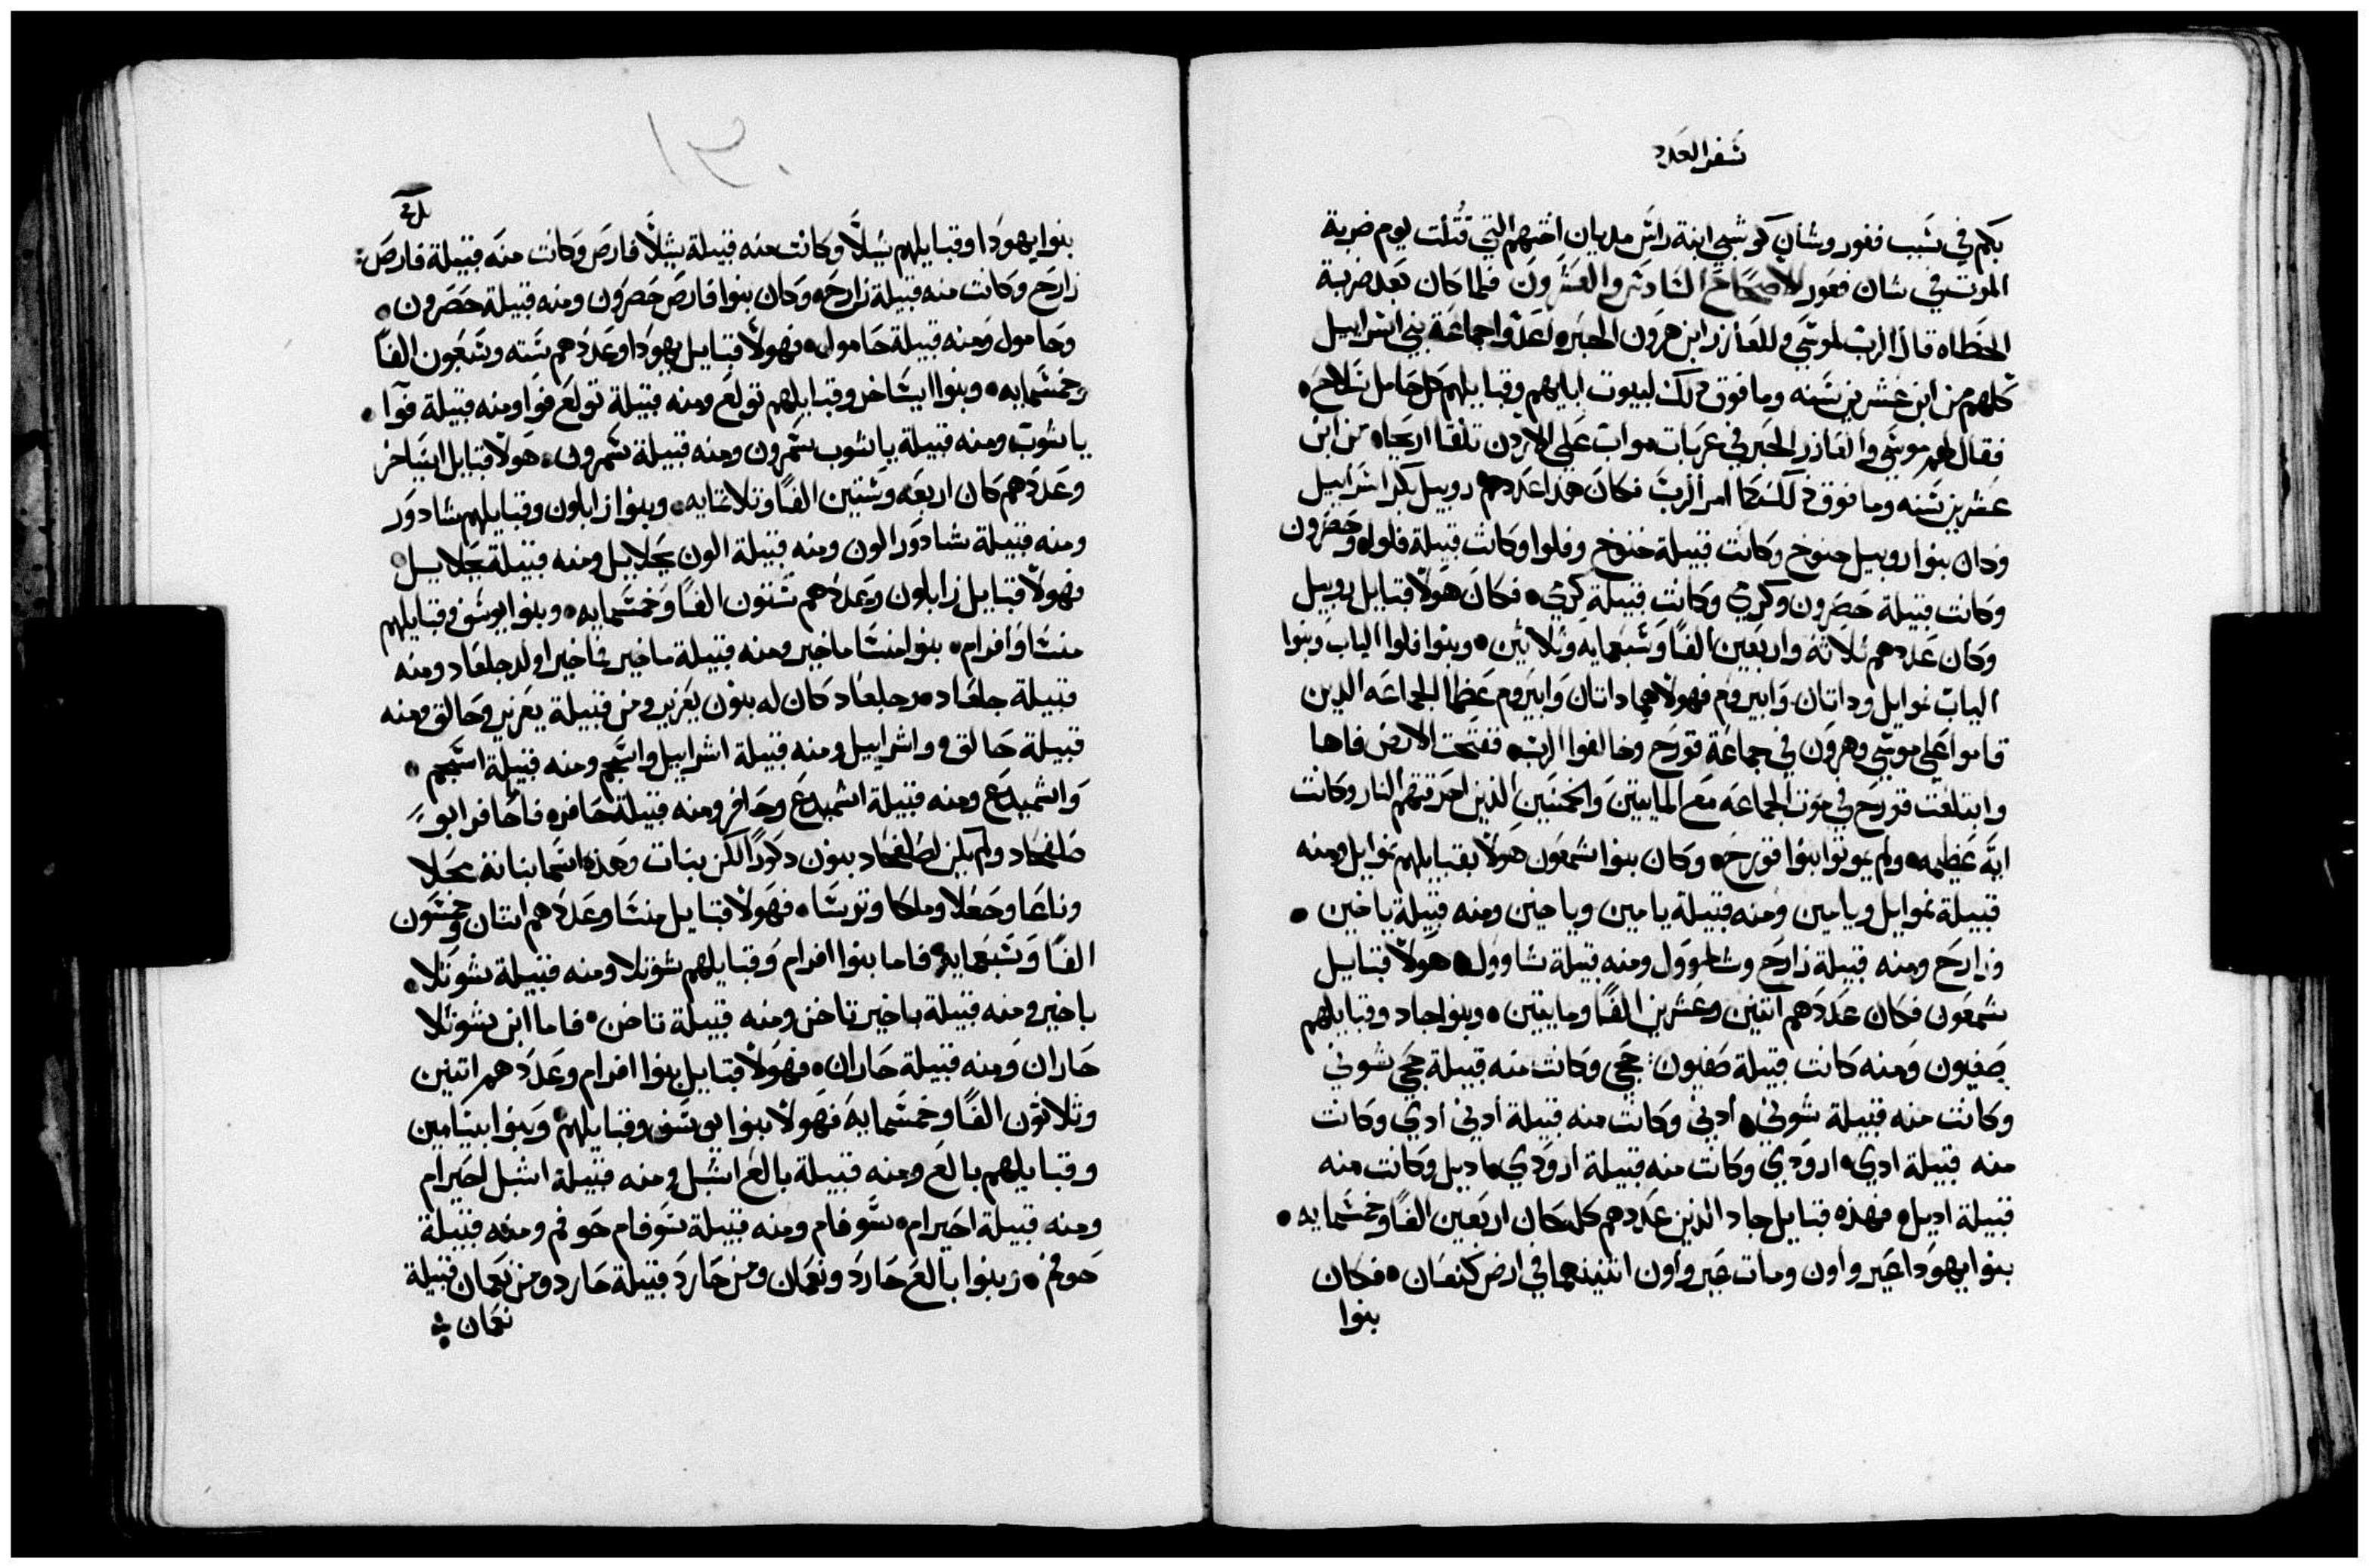 سفر العدد
بكم في سَبب فغور وشان كوشبي ابنة راس مديان اختهم التي قُتلت يوم ضربة
الموت في شان فغور الاصحَاحَ السَادسَ والعَشرونَ فلما كان بَعد ضربة
الخطاه قال الرب لموسَي وللعازر ابن هرون الحبر اعَدوا جماعَة بني اسَراييل
كلهم من ابن عشرين سَنه وما فوق ذلك لبيوت ابايهم وقبايلهم كل حَامل سَلاحَ
فقال لهم موسَي والعَازر الحَبر في عرَبات مواب عَلي الاردن تلقا اريحَا من ابن
عشرين سَنه وما فوق ذلك كما امر الربَ فكان هذا عَددهم روبيل بكر اسَراييل
وكان بنوا روبيل حنوخ وكانت قبيلة حنوخ وفلوا وكانت قبيلة فلوا وحَصرون
وكانت قبيلة حَصرون وكرمي وكانت قبيلة كرمي فكان هَولا قبايل روبيل
وكان عَددهم ثلاثة واربعين الفًا وسَبعمايه وثلاثين وبنوا فلوا الياب وبنوا
الياب نموايل وداتان وَابيروم فهولا هما داتان وَابيروم عَظما الجماعَه الدين
قاموا عَلي موسَي وهرون في جماعَة قورَح وخالفوا الرب ففتحت الارض فاها
وابتلعت قورحَ في موت الجماعَه مع المايتين والخمسَين الذين احَرقتهم النار وكانت
ايَة عَظيمه ولم يموتوا بنوا قورحَ وكان بنوا شمعَون هولا بقبايلهم نموايل ومنه
قبيلة نموايل ويامين ومنه قبيلة يامين وياخين ومنه قبيلة ياخين
وزارحَ ومنه قبيلة زارحَ وشاووَل ومنه قبيلة شاوول هولا قبايل
شمعَون فكان عَددَهم اتنين وعَشرين الفًا ومايتين وبنوا جاد وقبايلهم
صَفيون وَمنه كانت قبيلة صَفيون حجي وكانت منه قبيلة حجي شوني
وكانت منه قبيلة شوني أدني وكانت منه قبيلة أدني أدي وكانت
منه قبيلة ادي اروَدي وكانت منه قبيلة اروَدي اديل وكانت منه
قبيلة اديل فهذه قبايل جاد الذين عَددهم كلهكان اربعَين الفًا وخمسَمايه
بنوا يهوَدا عَير واون ومات عَير واون اتنينهما في ارض كنعَان فكان
بنوا
بنوا يهودا وقبايلهم سَيلًا وكانت منه قبيلة سيلًا فارصَ وكانت منه قبيلة فارصَ
زارَح وكانت منه قبيلة زارحَ وكان بنوا فارصَ حَصرون ومنه قبيلة حَصرون
وحَامول ومنه قبيلة حَامول فهولا قبايل يهودا وعَددهم سَته وسَبعون الفًا
وخمسَمايه وبنوا ايسَاخر وقبايلهم تولعَ ومنه قبيلة تولعَ فوا ومنه قبيلة فوا
ياشوب ومنه قبيلة ياشوب شمرون ومنه قبيلة شمرون هولا قبايل ايسَاخر
وعَددهم كان اربعَه وسَتين الفًا وتلاتمايه وبنوا زابلون وقبايلهم شادوَر
ومنه قبيلة شادوَر الون ومنه قبيلة الون يحَلاييل ومنه قبيلة يحَلاييل
فهولا قبايل زابلون وعَددهم سَتون الفًا وخمسَمايه وبنوا يوسَف وقبايلهم
منسَا وافرام بنوا منسَا ماخير ومنه قبيلة ماخير فماخير اولد جلعَاد ومنه
قبيلة جلعَاد وجلعَاد كان له بنون يعَزير ومن قبيلة يعَزير وحَالق ومنه
قبيلة حَالق واشراييل ومنه قبيلة اشراييل واسجم ومنه قبيلة اسجم
وَاشميدعَ ومنه قبيلة اشميدعَ وحَافر ومنه قبيلة حَافر فاما حَافر ابو
صَلفحَاد ولم يكن لصَلفحَاد بنون دكورًا لكن بنات وهَذه اسَما بناته محَلا
وناعَا وحَعَلا وملكا وترسَا فهَولا قبايل منسَا وعَددهم اتنان وخمسَون
الفًا وَسَبعَمايه فاما بنوا افرام وَقبايلهم شوتلا ومنه قبيلة شوتَلا
باخير ومنه قبيلة باخير تاخن ومنه قبيلة تاخن فاما ابن شوتلا
حَاران وَمنه قبيلة حَاران فهَولا قبايل بنوا افرام وعَددَهم اتنين
وثلاثون الفًا وخمسَمايهَ فهَولا بنوا يوسَف وقبايلهم وَبنوا بنيامين
وقبايلهم بالعَ ومنه قبيلة بالعَ اشبل ومنه قبيلة اشبل احَيرام
ومنه قبيلة احَيرام سَوفام ومنه قبيلة سَوفام حَوفم ومنه قبيلة
حَوفم وبنوا بالعَ حَاردَ ونعَمان ومن حَاردَ قبيلة حَارد ومن نعَمان قبيلة
نعَمان